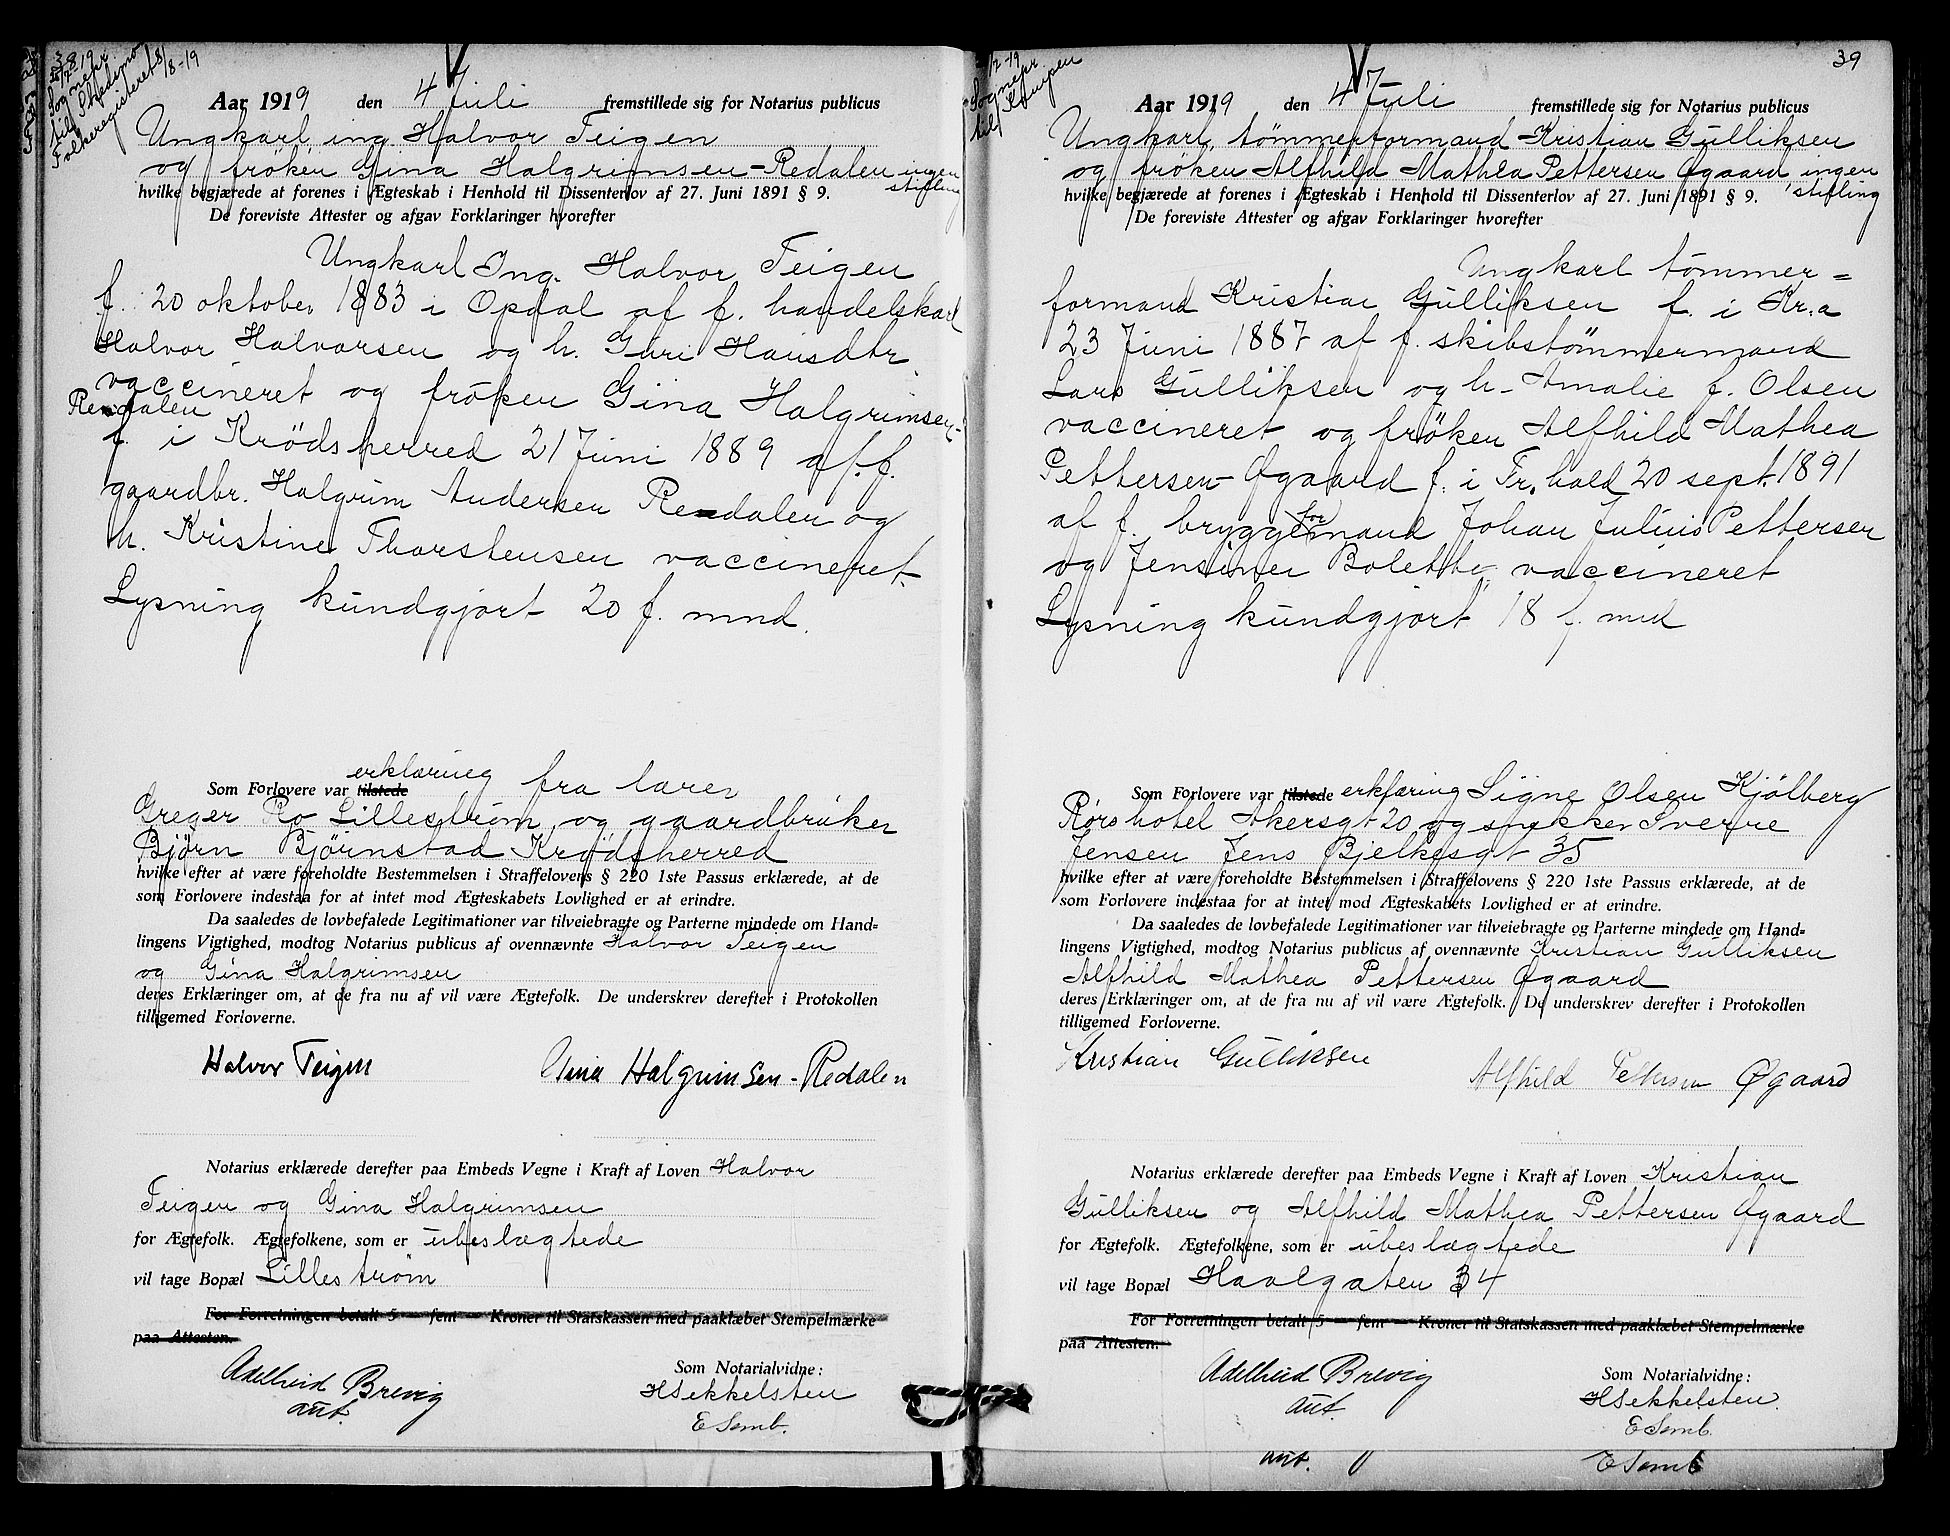 38
12/2 - 19
Sognepr.
til Skedsmo
Folkeregisteret 8/8-19
Aar 1919 den 4 Juli fremstillede sig for Notarius publicus
Ungkarl, ing. Halvor Teigen
og frøken Gina Halgrimsen-Redalen ingen
stifling
hvilke begjærede at forenes i Ægteskab i Henhold til Dissenterlov af 27. Juni 1891 § 9.
De foreviste Attester og afgav Forklaringer hvorefter
Ungkarl Ing. Halvor Teigen
f. 20 oktober 1883 i Opdal af f. handelskarl
Halvor Halvorsen og h. Guri Hansdtr.
vaccineret og frøken Gina Halgrimsen-
Redalen
f. i Krødsherred 21 Juni 1889 af f.
gaardbr. Halgrim Andersen Redalen og
h. Kristine Thorstensen vaccineret.
Lysning kundgjort 20 f. mnd.
erklæring
Som Forlovere var tilstede fra lærer
Greger Ro Lillestrøm og gaardbruker
Bjørn Bjørnstad Krødsherred
hvilke efter at være foreholdte Bestemmelsen i Straffelovens § 220 1ste Passus erklærede, at de
som Forlovere indestaa for at intet mod Ægteskabets Lovlighed er at erindre.
Da saaledes de lovbefalede Legitimationer var tilveiebragte og Parterne mindede om Hand=
lingens Vigtighed, modtog Notarius publicus af ovennævnte Halvor Teigen
og Gina Halgrimsen
deres Erklæringer om, at de fra nu af vil være Ægtefolk. De underskrev derefter i Protokollen
tilligemed Forloverne.
Halvor Teigen Gina Halgrimsen-Redalen
Notarius erklærede derefter paa Embeds Vegne i Kraft af Loven Halvor
Teigen og Gina Halgrimsen
for Ægtefolk. Ægtefolkene, som er ubeslægtede
vil tage Bopæl Lillestrøm
For Forretningen betalt 5 — fem — Kroner til Statskassen med paaklæbet Stempelmærke
paa Attesten.
Adelheid Brevig
aut.
Som Notarialvidne:
HSekkelsten
E Semb.
39
12/2 - 19
Sognepr.
til Kampen
Aar 1919 den 4 Juli fremstillede sig for Notarius publicus
Ungkarl, tømmerformand Kristian Gulliksen
og frøken Alfhild Mathea Pettersen Øgaard ingen
stifling
hvilke begjærede at forenes i Ægteskab i Henhold til Dissenterlov af 27. Juni 1891 § 9.
De foreviste Attester og afgav Forklaringer hvorefter
Ungkarl tømmer=
formand Kristian Gulliksen f. i Kr.a
23 Juni 1887 af f. skibstømmermand
Lars Gulliksen og h. Amalie f. Olsen
vaccineret og frøken Alfhild Mathea
Pettersen-Øgaard f. i Fr.hald 20 sept. 1891
af f. bryggeformand Johan Julius Pettersen
og Jensine Bolette vaccineret
Lysning kundgjort 18 f. mnd
Som Forlovere var tilstede erklæring Signe Olsen Kjølberg
Røros hotel Akersgt 20 og snekker Sverre
Jensen Jens Bjelkesgt 35
hvilke efter at være foreholdte Bestemmelsen i Straffelovens § 220 1ste Passus erklærede, at de
som Forlovere indestaa for at intet mod Ægteskabets Lovlighed er at erindre.
Da saaledes de lovbefalede Legitimationer var tilveiebragte og Parterne mindede om Hand=
lingens Vigtighed, modtog Notarius publicus af ovennævnte Kristian Gulliksen
Alfhild Mathea Pettersen Øgaard
deres Erklæringer om, at de fra nu af vil være Ægtefolk. De underskrev derefter i Protokollen
tilligemed Forloverne.
Kristian Gulliksen Alfhild Pettersen Øgaard
Notarius erklærede derefter paa Embeds Vegne i Kraft af Loven Kristian
Gulliksen og Alfhild Mathea Pettersen Øgaard
for Ægtefolk. Ægtefolkene, som er ubeslægtede
vil tage Bopæl Havlgaten 34
For Forretningen betalt 5 — fem — Kroner til Statskassen med paaklæbet Stempelmærke
paa Attesten.
Adelheid Brevig
aut.
Som Notarialvidne:
HSekkelsten.
E Semb.
aut.
E Semb